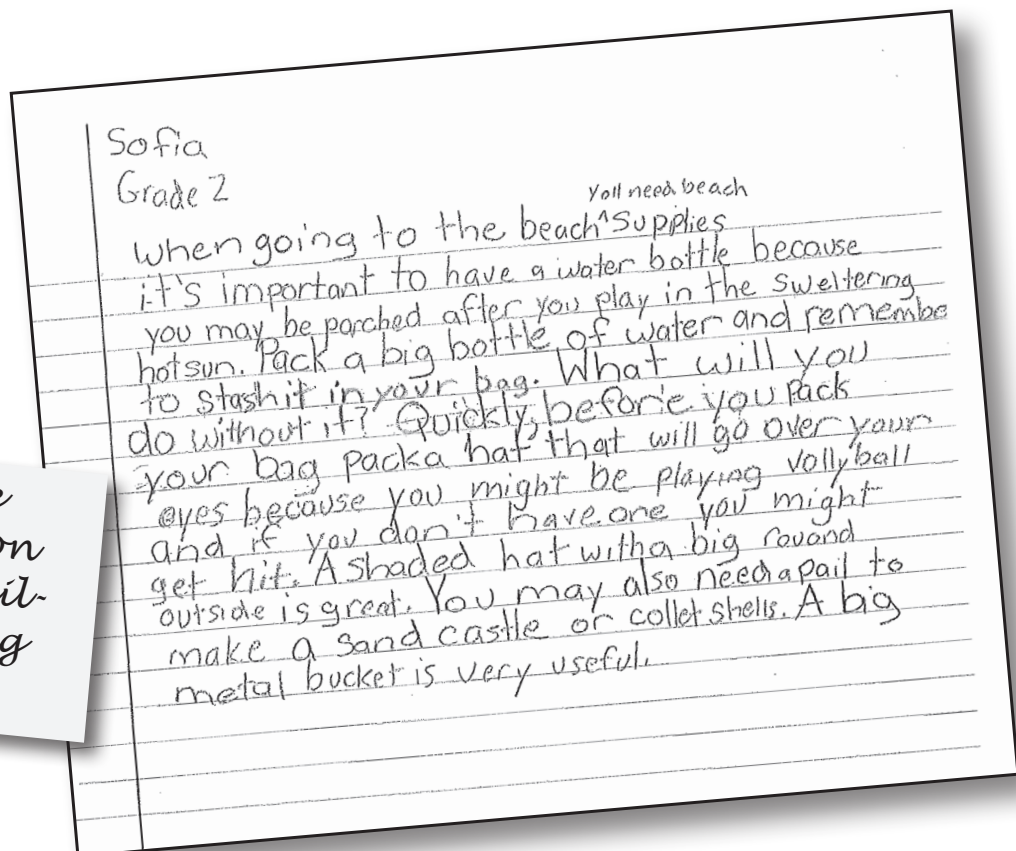 Sofia
Grade 2
you'll need beach
When going to the beach ^ supplies
it's important to have a water bottle because
you may be parched after you play in the sweltering
hot sun. Pack a big bottle of water and remembe
to stash it in your bag. What will you
do without it? Quickly, before you pack
your bag pack a hat that will go over your
eyes because you might be playing vollyball
and if you don't have one you might
get hit. A shaded hat with a big rouand
outside is great. You may also need a pail to
make a sand castle or collet shells. A big
metal bucket is very useful.
e
on
il-
g